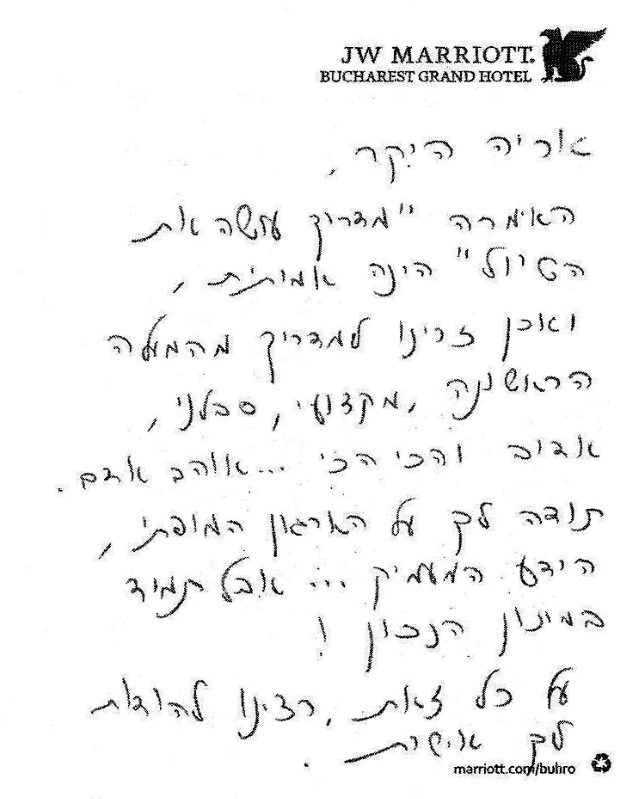 JW MARRIOTT.
BUCHAREST GRAND HOTEL
אריה היקר,
האימרה "מדריך עושה את
הטיול" הינה אמיתית,
ואכן זכינו למדריך מהמעלה
הראשונה, מקצועי, סבלני,
אדיב והכי הכי ... אוהב אדם.
תודה לך על הארגון המופתי,
הידע המעמיק ... אבל תמיד
במינון הנכון !
על כל זאת, רצינו להודות
לך אישית.
marriott.com/buhro